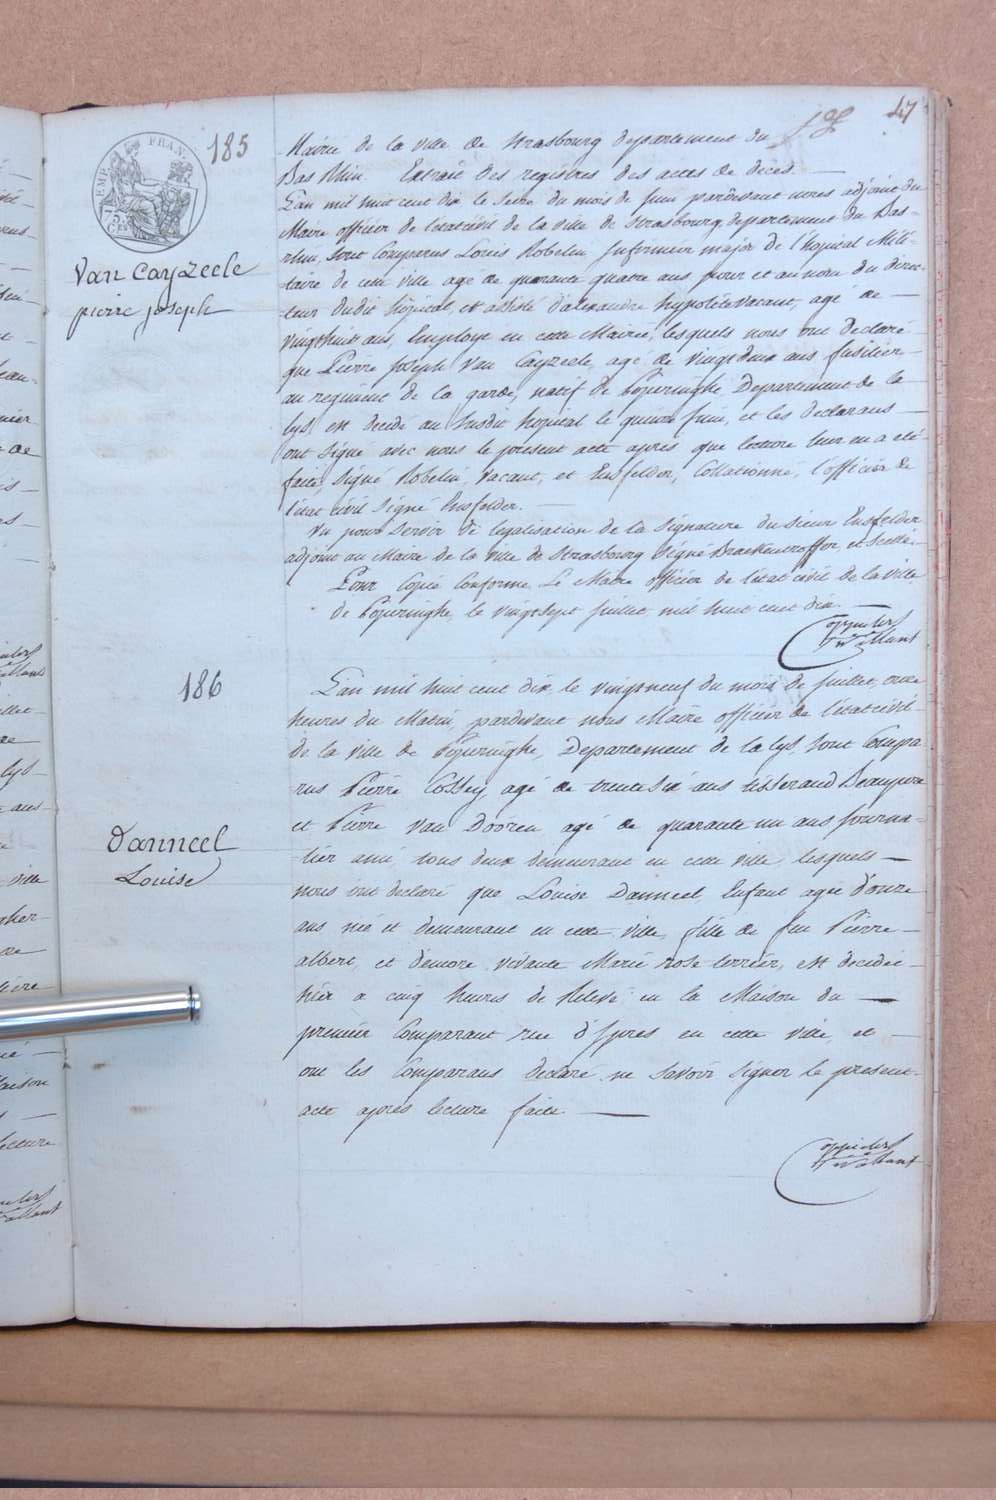 47
EMP. FRAN.
75
185
Van Cayzeele
pierre joseph
Mairie de la ville de Strasbourg departement du
Bas Rhin. Extrait des registres des actes de décès. —
L'an mil huit cent dix le seize du mois de Juin pardevant nous adjoint du
Maire officier de l'etat civil de la ville de Strasbourg, departement du Bas-
rhin, sont Comparus Louis Robelin Infirmier major de l'hopital Mili-
taire de cette ville agé de quarante quatre ans pour et au nom du direc-
teur dudit hôpital, et assisté d'alexandre hypolite Vacant, agé de —
vingt huit ans, Employé en cette Mairie, lesquels nous ont declaré
que Pierre Joseph Van Cayzeele, agé de vingt deux ans fusilier
au regiment de la garde, natif de Popuringhe Departement de la
lys, est decedé au susdit hopital le quinze Juin, et les declarans —
ont signé avec nous le present acte apres que lecture leur en a eté
faite, signé Robelin, Vacant, et Ensfelder, Collationné, l'officier de
l'état civil signé Ensfelder. —
Vu pour servir de legalisation de la signature du sieur Ensfelder
adjoint au Maire de la ville de Strasbourg signé Brackenhoffer, et scellé —
Pour Copie Conforme Le Maire officier de l'etat civil de la ville
de Popuringhe, le vingt sept Juillet mil huit cent dix. —
186
Danneel
Louise
L'an mil huit cent dix, le vingt neuf du mois de Juillet, onze
heures du Matin, pardevant nous Maire officier de l'état civil
de la ville de Popuringhe, Departement de la lys, sont Compa-
rus Pierre Cossey, agé de trente six ans tisserand Beaupere
et Pierre Van Dooren, agé de quarante un ans Journa-
lier ami, tous deux demeurant en cette ville, lesquels —
nous ont declaré que Louise Danneel Enfant agée d'onze
ans née et demeurant en cette ville, fille de feu Pierre —
albert, et d'encore vivante Marie rose terrier, est decedée
hier a cinq heures de Relevé en la Maison du —
premier Comparant rue d'Ypres en cette ville, et —
ont les Comparans declaré ne savoir signer le present
acte après lecture faite. —